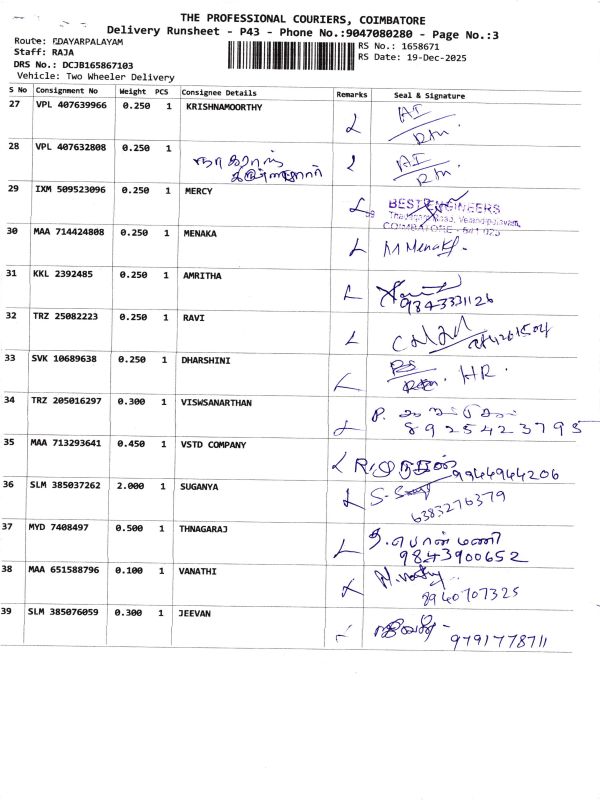 THE PROFESSIONAL COURIERS, COIMBATORE
Delivery Runsheet - P43 - Phone No.:9047080280 - Page No.:3
Route: EDAYARPALAYAM
RS No.: 1658671
Staff: RAJA
RS Date: 19-Dec-2025
DRS No.: DCJB165867103
Vehicle: Two Wheeler Delivery
S No Consignment No Weight PCS Consignee Details Remarks Seal & Signature
27 VPL 407639966 0.250 1 KRISHNAMOORTHY
28 VPL 407632808 0.250 1
29 IXM 509523096 0.250 1 MERCY
BEST ENGINEERS
COIMBATORE - 641 025
30 MAA 714424808 0.250 1 MENAKA M Menaka
31 KKL 2392485 0.250 1 AMRITHA
9843331126
32 TRZ 25082223 0.250 1 RAVI
33 SVK 10689638 0.250 1 DHARSHINI
HR.
34 TRZ 205016297 0.300 1 VISWSANARTHAN
8925423795
35 MAA 713293641 0.450 1 VSTD COMPANY 9944944206
36 SLM 385037262 2.000 1 SUGANYA
6383276379
37 MYD 7408497 0.500 1 THNAGARAJ த.பொன்மணி
9843900652
38 MAA 651588796 0.100 1 VANATHI
8940707325
39 SLM 385076059 0.300 1 JEEVAN
9791778711